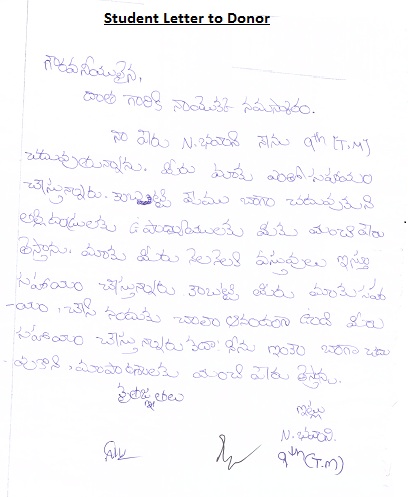 Student Letter to Donor
గౌరవనీయులైన,
దాత గారికి నాయొక్క నమస్కారం.
నా పేరు N. భవాని నేను 9th (T.M)
చదువుతున్నాను. మీరు మాకు ఎంతో సహాయం
చేస్తున్నారు. కాబట్టి మేము బాగా చదువుకుని
తల్లిదండ్రులకు ఉపాధ్యాయులకు మేము మంచి పేరు
తెస్తాము. మాకు మీరు నెలనెలకి వస్తువులు ఇస్తూ
సహాయం చేస్తున్నారు కాబట్టి మీరు మాకు సహా
-యం, చేసి నందుకు చాలా ఆనందంగా ఉంది మీరు
సహాయం చేస్తున్నారు కదా! నేను ఇంకా బాగా చదు
-వుకొని, మాపాఠశాలకు మంచి పేరు తెస్తాను.
కృతజ్ఞతలు
ఇట్లు
N. భవాని.
9th (T.M)